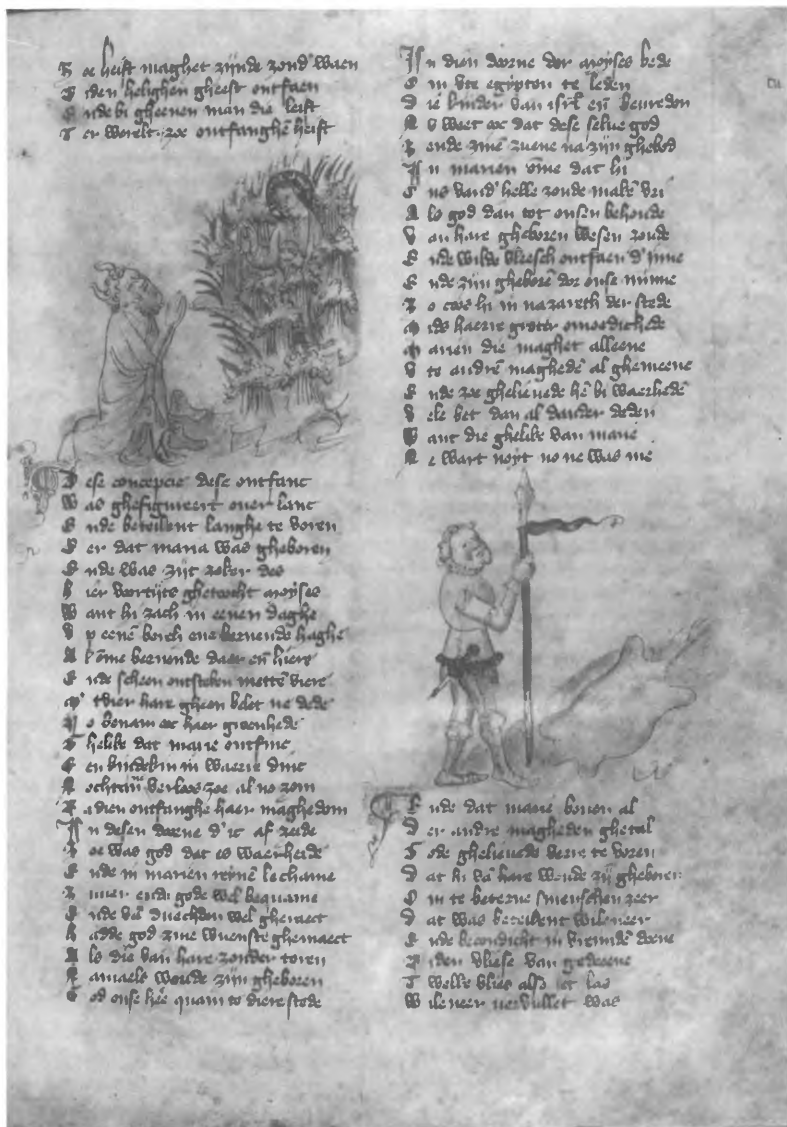 Z oe heift maghet zijnde zond' waen
B iden helighen gheest ontfaen
E nde bi gheenen man die leift
T er werelt zoe ontfanghē heift
D ese concepcie dese ontfanc
W as ghefigureert over lanc
E nde beteikent langhe te voren
E er dat maria was gheboren
E nde was zijt zeker des
H ier voortijts ghetoocht moyses
W ant hi zach in eenen daghe
U p eenē berch ene bernende haghe
A l ōme bernende daer eñ hiere
E nde scheen ontsteken metten viere
M' tvier hare gheen belet ne dede
N o benam oec haer groenhede
T helike dat marie ontfinc
E en kindekin in waerre dinc
N ochtan verloos zoe al no zom
B i dien ontfanghe haer maghedom
I n desen doerne d'ic af zeide
Z oe was god dat es waerheide
E nde in marien reynē lechame
Z uver ende gode wel bequame
E nde vā duechden wel gheraect
H adde god zine wuenste ghemaect
A ls die van hare zonder toren
N amaels woude zijn gheboren
G od onse hēe quam te diere stede
I n dien doerne daer moyses bede
O m ute egypten te leden
D ie kinder van isrl' eñ bevreden
N u weet oec dat dese selve god
Z ende zinē zuene na zijn ghebod
I n marien ōme dat hi
O ns vand' helle zoude makē vri
A ls god dan tot onsen behoude
V an hare gheboren wesen zoude
E nde wilde vleesch ontfaen d'inne
E nde zijn gheborē dor onse minne
Z o coes hi in nazareth der stede
M ids haerre groter omoedichede
M arien die maghet alleene
U te andrē maghedē al ghemeene
E nde zoe ghelievede hē bi waerhedē
V ele bet dan al dander deden
W ant die ghelike van marie
N e wart noyt no ne was nie
E nde dat marie boven al
D er andre magheden ghetal
G ode ghelievede verre te voren
D at hi vā hare woude zij gheboren
O m te beterne smenschen zeer
D at was beteikent wileneer
E nde becondicht in vremdē doene
B iden vliese van gedeoene
T welke vlies alst ic las
W ileneer vervullet was